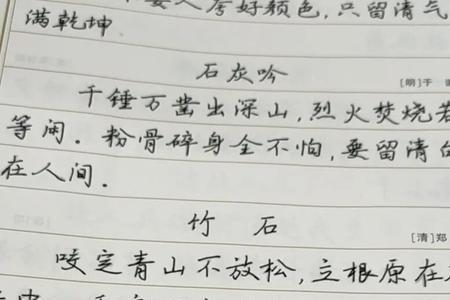 要人夸好颜色,只留清气
满乾坤.
石灰吟
[明]于
千锤万凿出深山,烈火焚烧若
等闲.粉骨碎身全不怕,要留清白
在人间.
竹 石
[清]郑
咬定青山不放松,立根原在